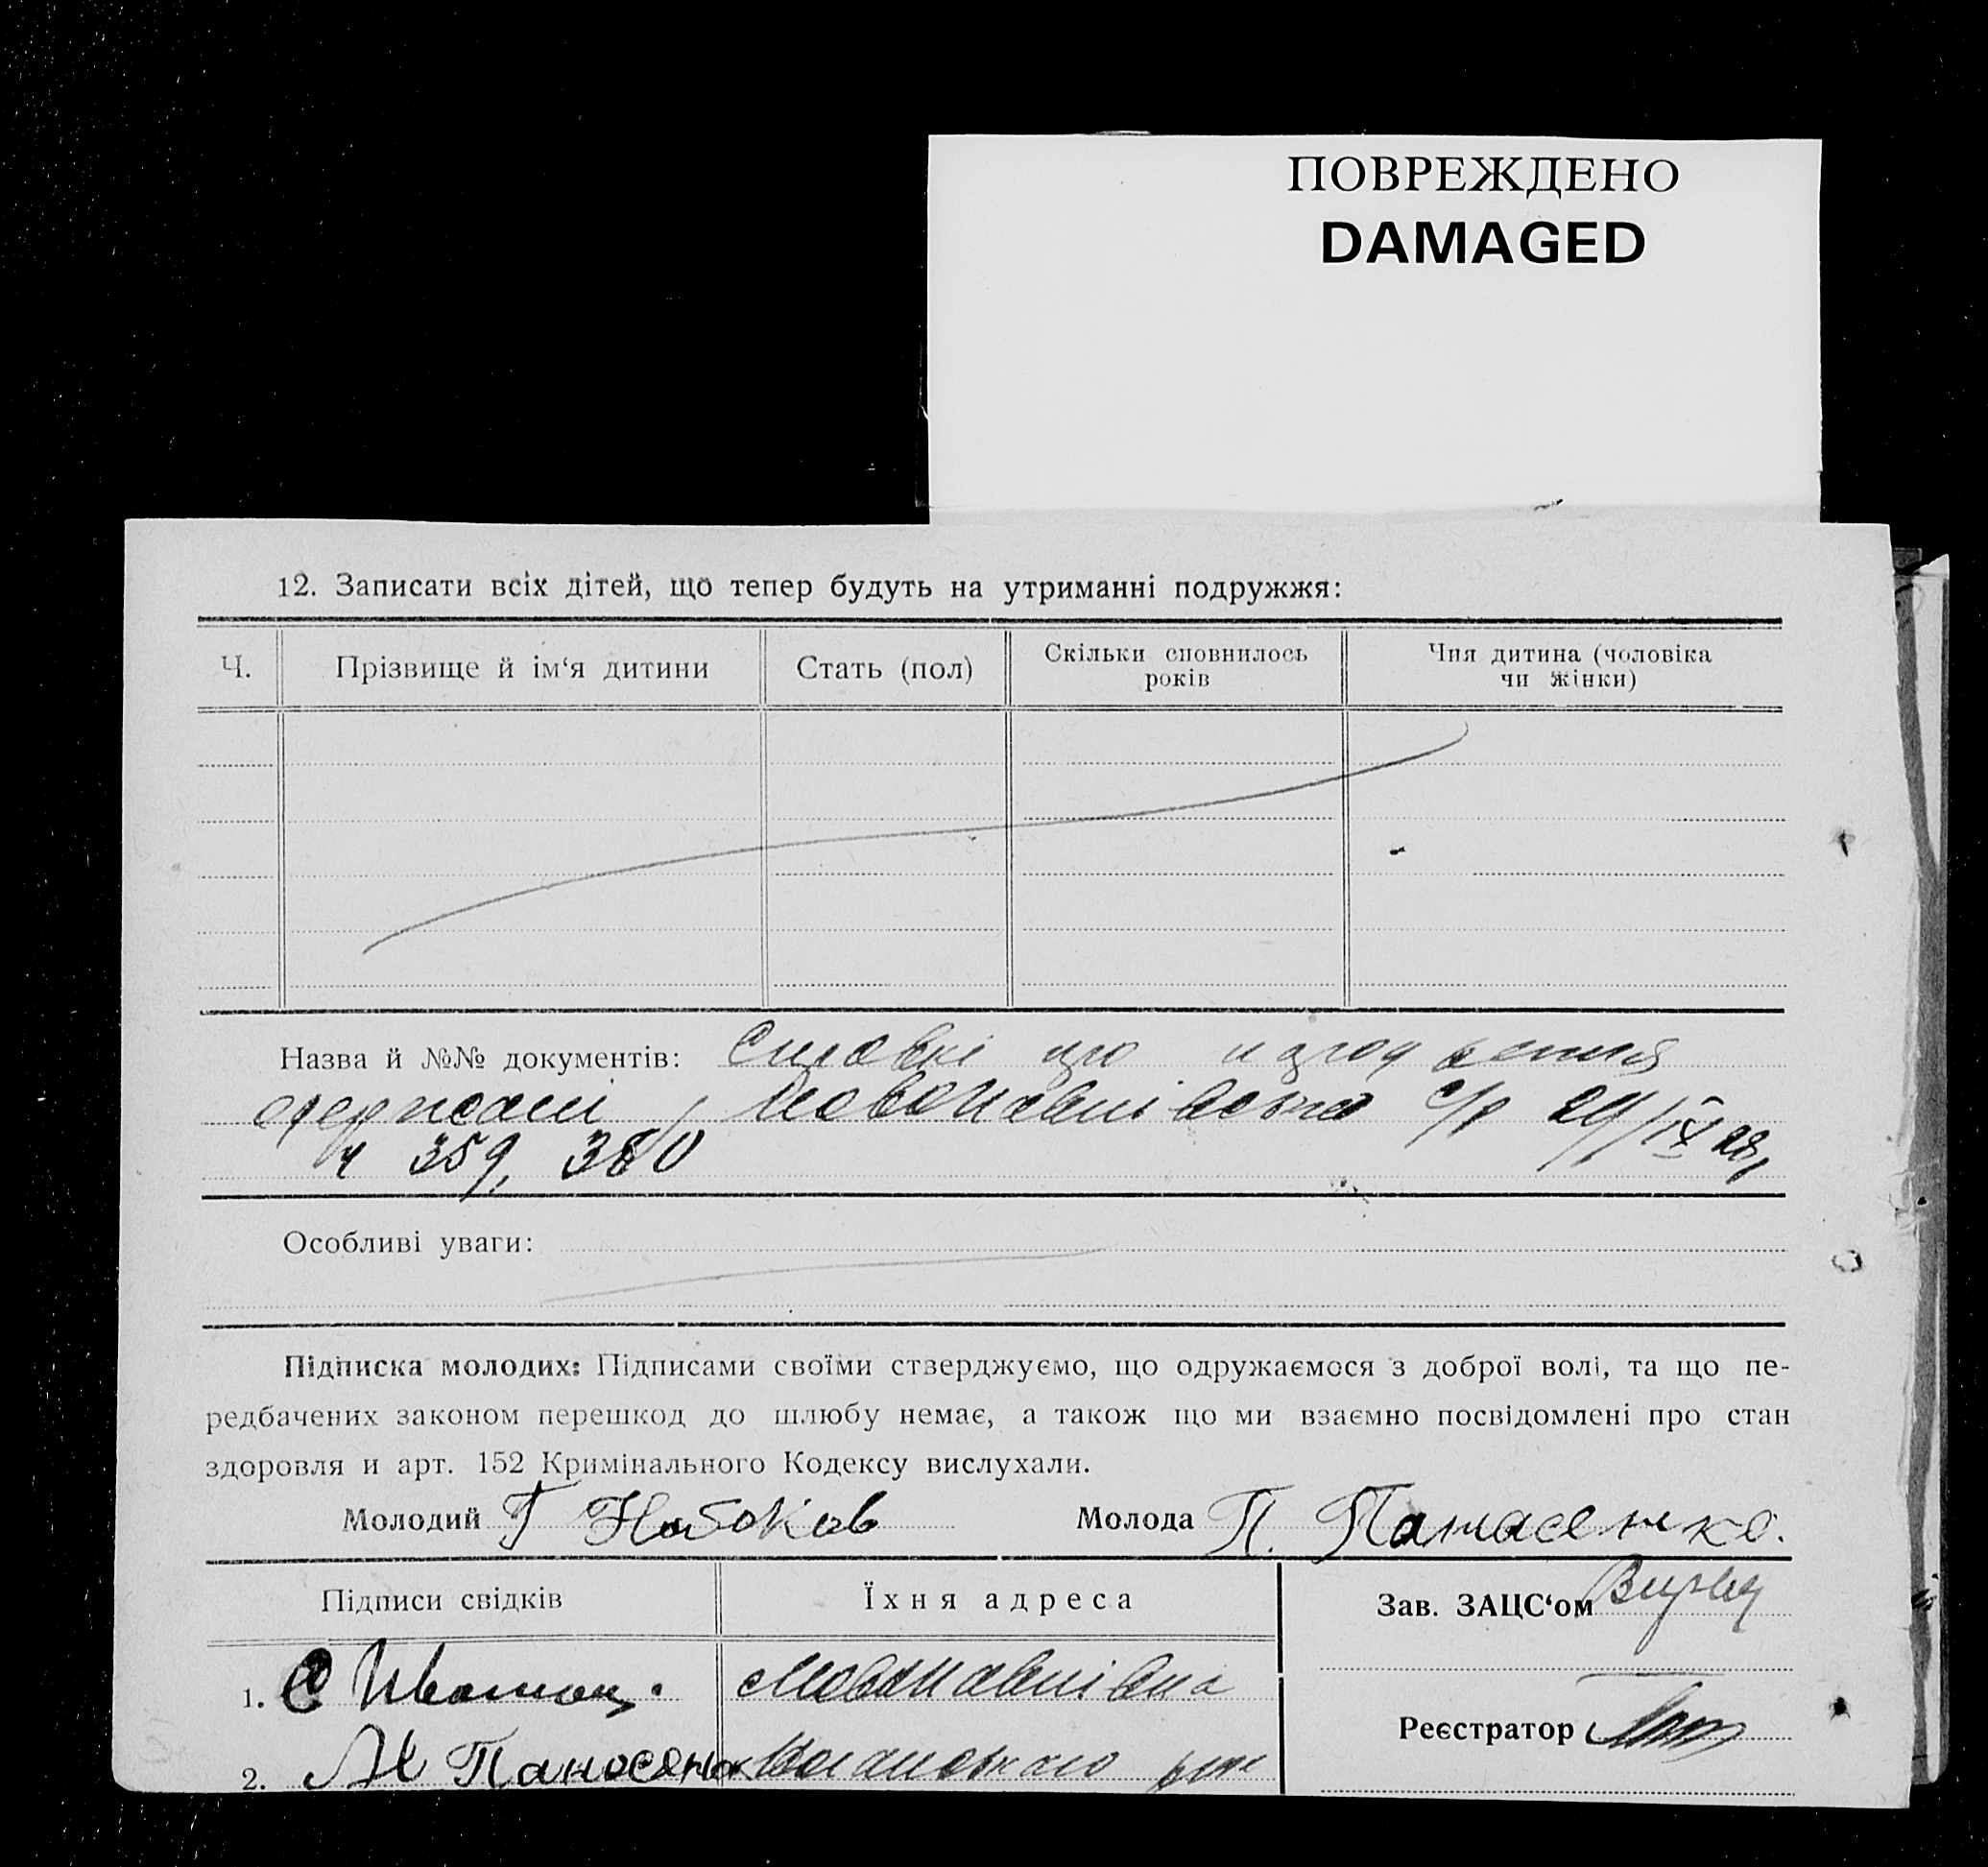 ПОВРЕЖДЕНО
DAMAGED
12. Записати всіх дітей, що тепер будуть на утриманні подружжя:
Ч. Прізвище й ім‘я дитини Стать (пол) Скільки сповнилось років Чия дитина (чоловіка чи жінки)
Назва й №№ документів:
с/р 24/IX 28
ч 359, 360
Особливі уваги:
Підписка молодих: Підписами своїми стверджуємо, що одружаємося з доброї волі, та що пе-
редбачених законом перешкод до шлюбу немає, а також що ми взаємно посвідомлені про стан
здоровля и арт. 152 Кримінального Кодексу вислухали.
Молодий Г Набоков Молода П. Панасенко.
Підписи свідків Їхня адреса Зав. ЗАЦС‘ом
1. С
2. М Панасенко
Реєстратор